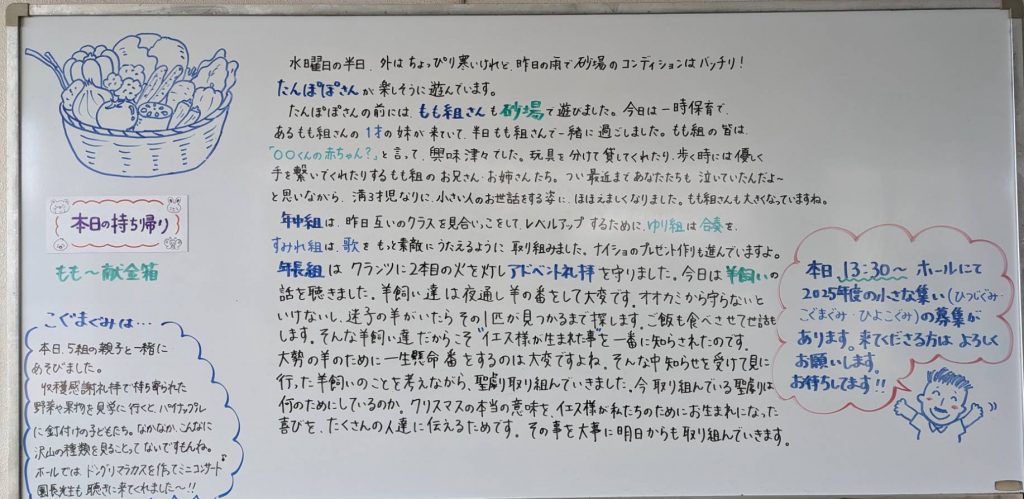 水曜日の半日、外はちょっぴり寒いけれど、昨日の雨で砂場のコンディションはバッチリ!
たんぽぽさんが楽しそうに遊んでいます。
たんぽぽさんの前には、もも組さんも砂場で遊びました。今日は一時保育で、
あるもも組さんの1才の妹が来ていて、半日もも組さんで一緒に過ごしました。もも組の皆は、
「〇〇くんの赤ちゃん?」と言って、興味津々でした。玩具を分けて貸してくれたり、歩く時には優しく
手を繋いでくれたりするもも組のお兄さん・お姉さんたち。つい最近まであなたたちも泣いていたんだよ~
と思いながら、満3才児なりに、小さい人のお世話をする姿に、ほほえましくなりました。もも組さんも大きくなっていますね。
年中組は、昨日互いのクラスを見合いっこをして、レベルアップするために、ゆり組は合奏を、
すみれ組は、歌をもっと素敵にうたえるように取り組みました。ナイショのプレゼント作りも進んでいますよ。
年長組はクランツに2本目の火を灯しアドベント礼拝を守りました。今日は羊飼いの
話を聴きました。羊飼い達は夜通し羊の番をして大変です。オオカミから守らないと
いけないし、迷子の羊がいたらその1匹が見つかるまで探します。ご飯も食べさせて世話も
します。そんな羊飼い達だからこそ"イエス様が生まれた事"を一番に知らされたのです。
大勢の羊のために一生懸命番をするのは大変ですよね。そんな中知らせを受けて見に
行った羊飼いのことを考えながら、聖劇取り組んでいきました。今取り組んでいる聖劇は
何のためにしているのか。クリスマスの本当の意味を、イエス様が私たちのためにお生まれになった
喜びを、たくさんの人達に伝えるためです。その事を大事に明日からも取り組んでいきます。
本日の持ち帰り
もも~献金箱
こぐまぐみは…
本日、5組の親子と一緒に
あそびました。
収穫感謝礼拝で持ち寄られた
野菜や果物を見学に行くと、パイナップル
に釘付けの子どもたち。なかなか、こんなに
沢山の種類を見ることってないですもんね。
ホールでは、ドングリマラカスを作ってミニコンサート♪
園長先生も聴きに来てくれました~!!
本日、13:30~ ホールにて
2025年度の小さな集い(ひつじぐみ・
こぐまぐみ・ひよこぐみ)の募集が
あります。来てくださる方はよろしく
お願いします。
お待ちしてます!!